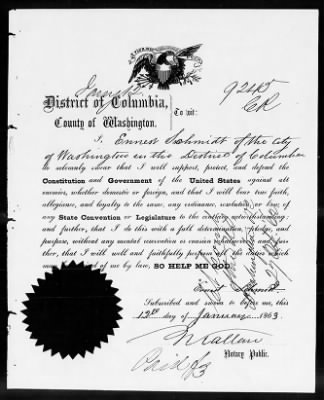 9245
District of Columbia,
County of Washington.
To wit:
I, Ernest Schmidt of the City
of Washington in the District of Columbia
do solemnly swear that I will support, protect, and defend the
Constitution and Government of the United States against all
enemies, whether domestic or foreign, and that I will bear true faith,
allegiance, and loyalty to the same, any ordinance, resolution or law of
any State Convention or Legislature to the contrary notwithstanding;
and further, that I do this with a full determination, pledge, and
purpose, without any mental reservation or evasion whatsoever; and further,
that I will well and faithfully perform all the duties which
may be required of me by law, SO HELP ME GOD.
Subscribed and sworn to before me, this
12th day of January 1863
N Callan
Notary Public.
Paid